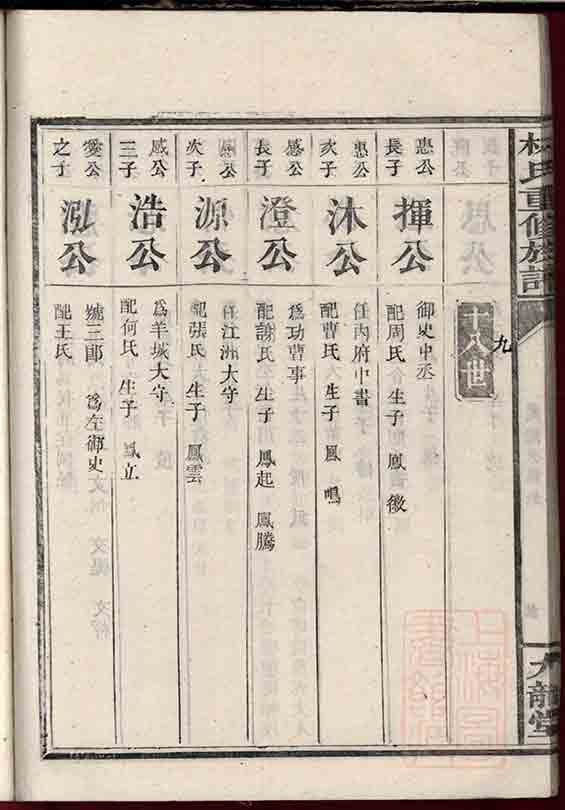 林氏重修族譜
九龍堂
九
十八世
惠公
長子
揮公
御史中丞
配周氏 生子 鳳徽
惠公
次子
沐公
任內府中書
配曹氏 生子 鳳鳴
感公
長子
澄公
為功曹事
配謝氏 生子 鳳起 鳳騰
感公
次子
源公
任江洲大守
配張氏 生子 鳳雲
感公
三子
浩公
為羊城大守
配何氏 生子 鳳立
愛公
之子
泓公
號三郎 為左御史
配王氏